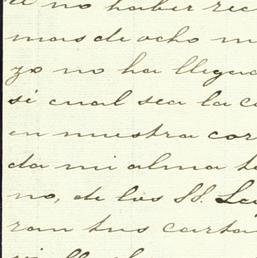 no haber rec
mas de ocho m
yo no ha llega
si cual sea la c
en nuestra cor
da mi alma t
no, de los SS. Le
ran tus carta